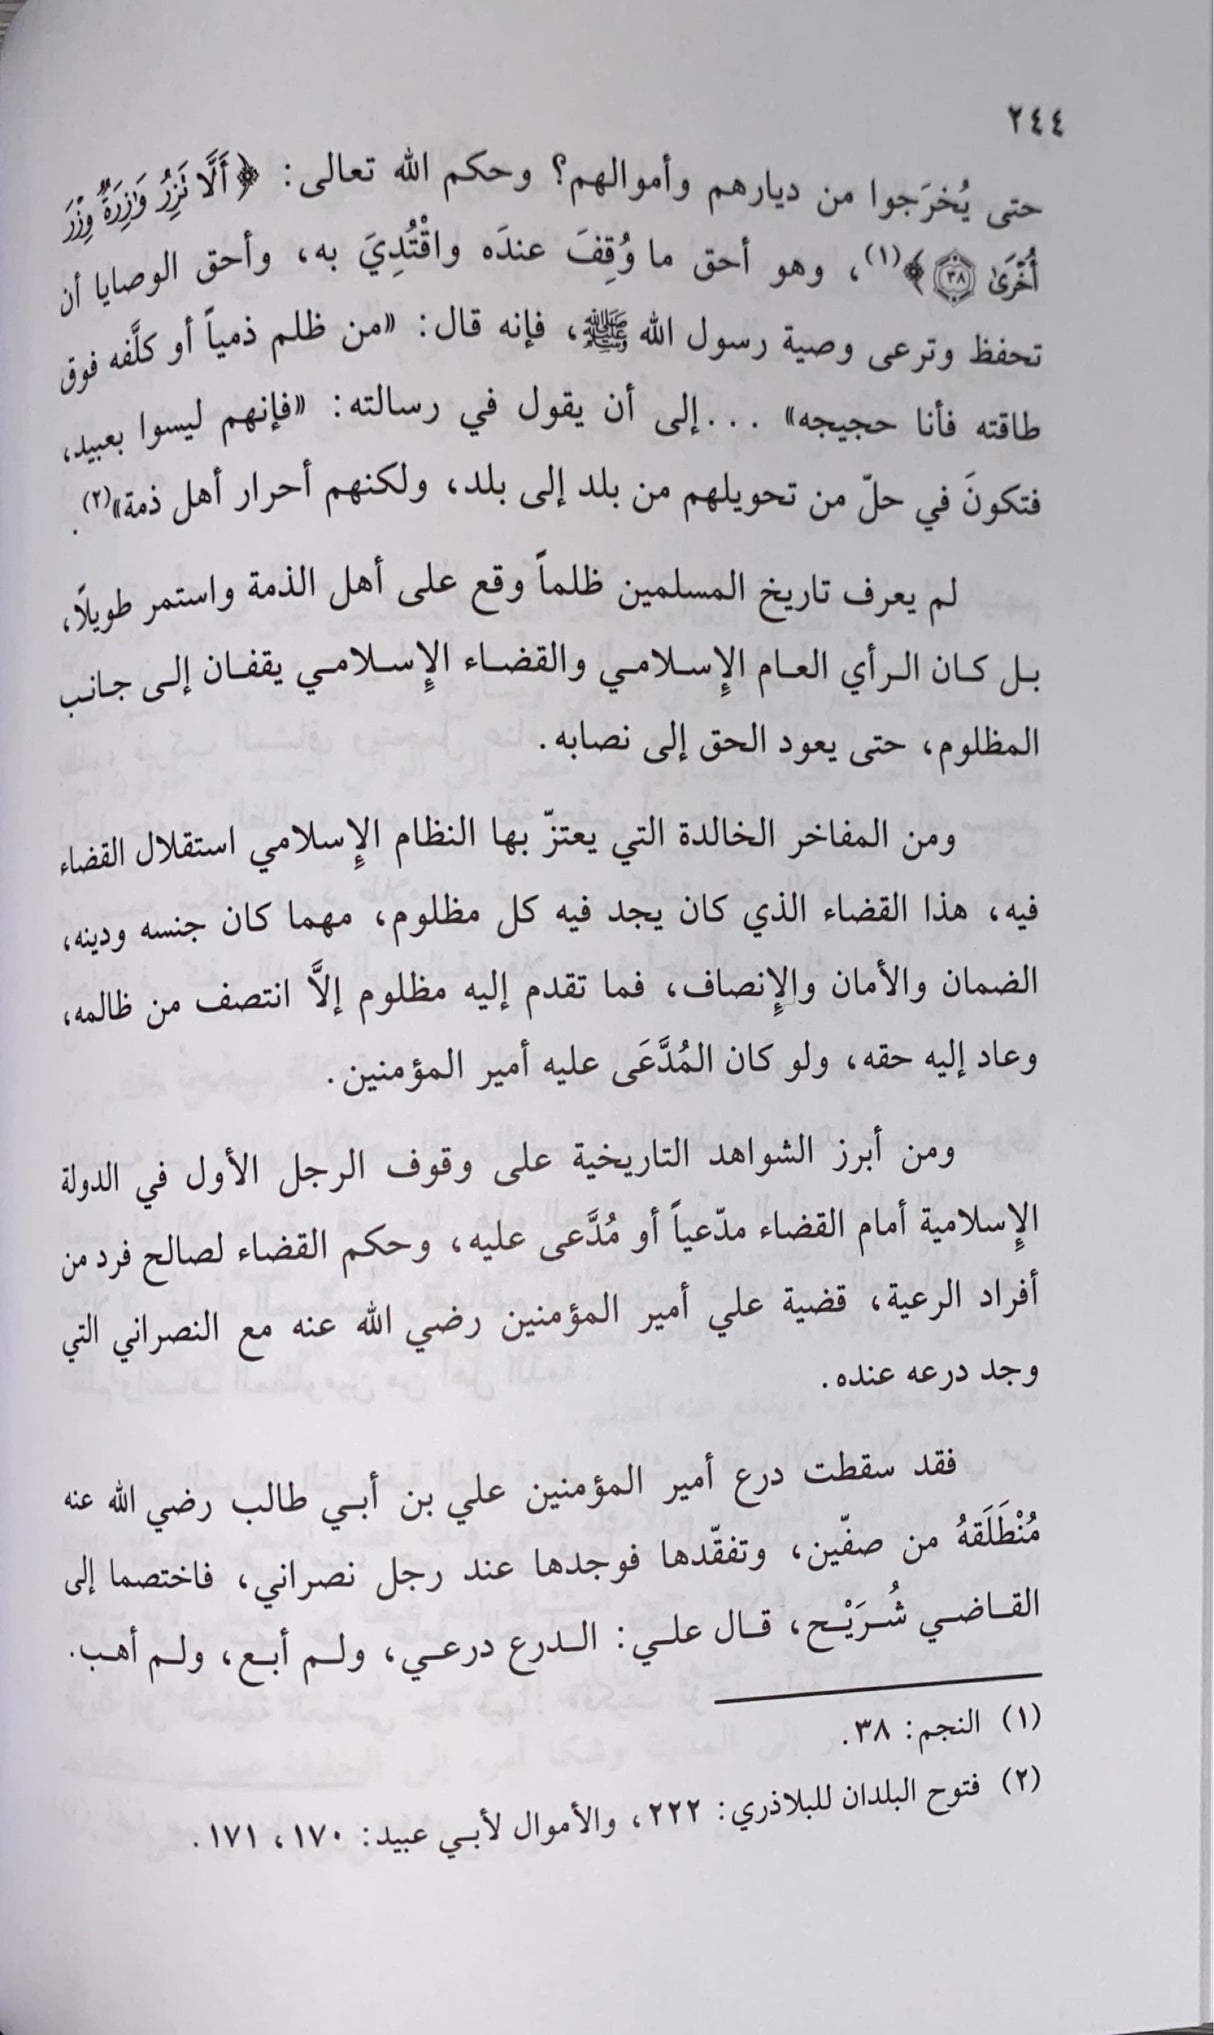 ٢٤٤
حتى يُخرَجوا من ديارهم وأموالهم؟ وحكم الله تعالى: ﴿أَلَّا تَزِرُ وَازِرَةٌ وِزْرَ
أُخْرَىٰ ٣٨﴾(١)، وهو أحق ما وُقِفَ عندَه واقْتُدِيَ به، وأحق الوصايا أن
تحفظ وترعى وصية رسول الله ﷺ، فإنه قال: «من ظلم ذمياً أو كلَّفه فوق
طاقته فأنا حجيجه» ...إلى أن يقول في رسالته: «فإنهم ليسوا بعبيد،
فتكونَ في حلّ من تحويلهم من بلد إلى بلد، ولكنهم أحرار أهل ذمة»(٢).
لم يعرف تاريخ المسلمين ظلماً وقع على أهل الذمة واستمر طويلًا،
بل كان الرأي العام الإسلامي والقضاء الإسلامي يقفان إلى جانب
المظلوم، حتى يعود الحق إلى نصابه.
ومن المفاخر الخالدة التي يعتزّ بها النظام الإسلامي استقلال القضاء
فيه، هذا القضاء الذي كان يجد فيه كل مظلوم، مهما كان جنسه ودينه،
الضمان والأمان والإنصاف، فما تقدم إليه مظلوم إلَّا انتصف من ظالمه،
وعاد إليه حقه، ولو كان المُدَّعَى عليه أمير المؤمنين.
ومن أبرز الشواهد التاريخية على وقوف الرجل الأول في الدولة
الإسلامية أمام القضاء مدّعياً أو مُدَّعى عليه، وحكم القضاء لصالح فرد من
أفراد الرعية، قضية علي أمير المؤمنين رضي الله عنه مع النصراني التي
وجد درعه عنده.
فقد سقطت درع أمير المؤمنين علي بن أبي طالب رضي الله عنه
مُنْطَلَقَهُ من صفّين، وتفقّدها فوجدها عند رجل نصراني، فاختصما إلى
القاضي شُرَيْح، قال علي: الدرع درعي، ولم أبع، ولم أهب.
(١) النجم: ٣٨.
(٢) فتوح البلدان للبلاذري: ٢٢٢، والأموال لأبي عبيد: ١٧٠، ١٧١.